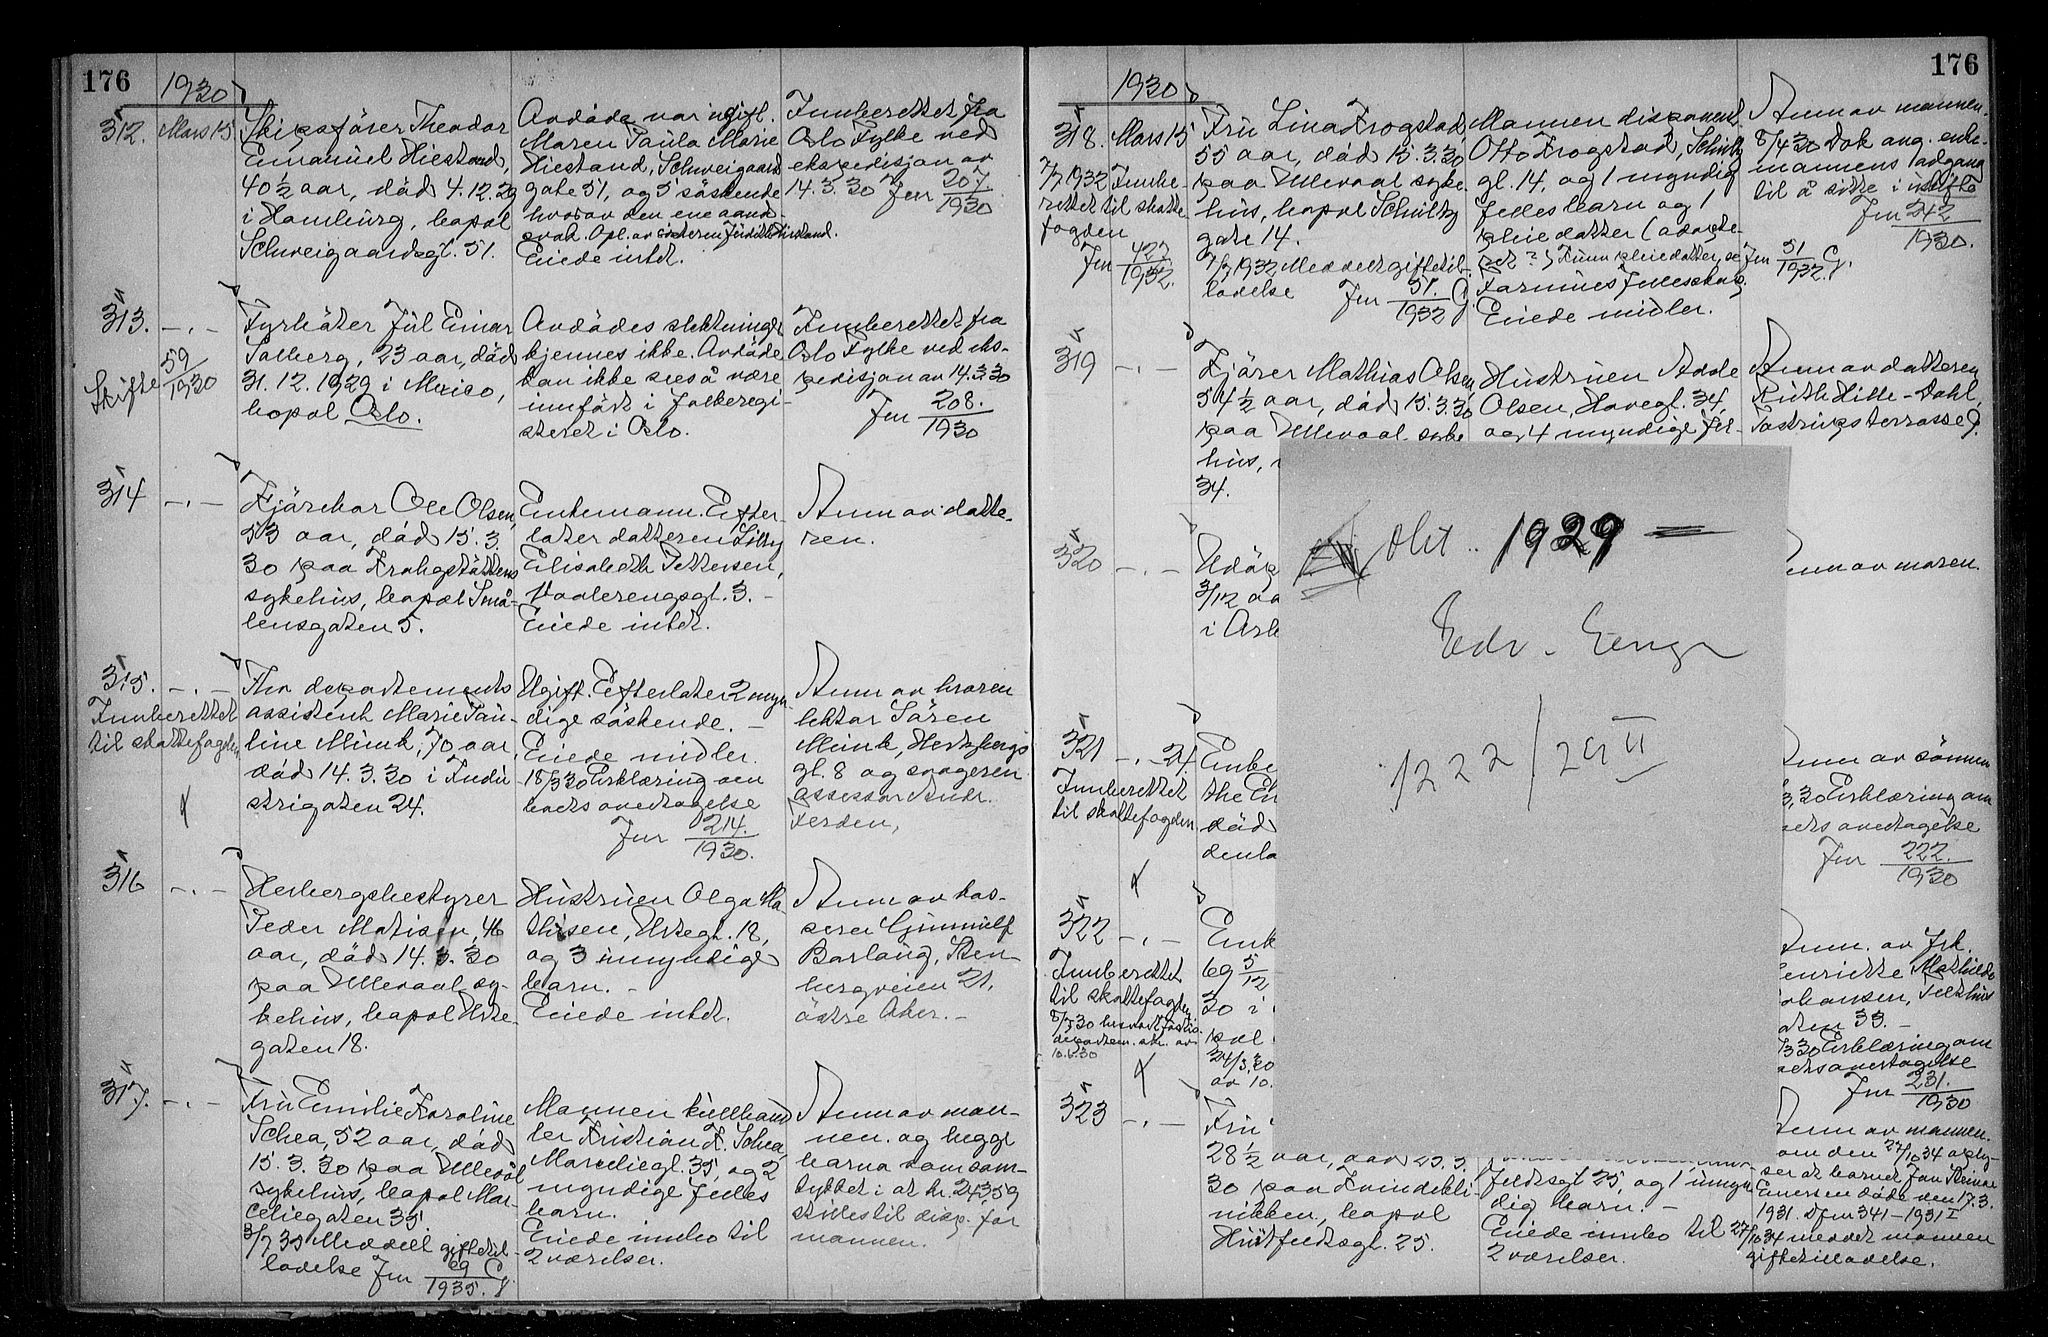 176
1930
312. Mars 15
Skipsfører Theodor
Emanuel Hiestand,
40½ aar, død 4.12.29
i Hamburg, bopæl
Schweigaardsgt. 51.
Avdøde var ugift.
Maren Paula Marie
Hiestand, Schweigaards
gate 51, og 5 søskende
hvorav den ene aand-
svak. Opl. av søsteren Judith Hiestand.
Eiede intet.
Innberettet fra
Oslo Fylke ved
ekspedisjon av
14.3.30 Jnr 207/1930
313. -.-
Skifte 59/1930
Fyrbøter Jul Einar
Solberg, 23 aar, død
31.12.1929 i Mexico,
bopæl Oslo.
Avdødes slektninger
kjennes ikke. Avdøde
kan ikke sees å være
innført i folkeregi-
steret i Oslo.
Innberettet fra
Oslo Fylke ved eks-
pedisjon av 14.3.30
Jnr 208./1930
314 -.-
Kjørekar Ole Olsen,
53 aar, død 15.3.
30 paa Krohgstøttens
sykehus, bopæl Små-
lensgaten 5.
Enkemann. Efter-
later datteren Lilly
Elisabeth Pettersen,
Vaalerengsgt. 3. -
Eiede intet.
Anm av datte-
ren.
315. -.-
Innberettet
til skattefogden
Fhv departements
assistent Marie Pau-
line Münk, 70 aar,
død 14.3.30 i Indu
strigaten 24.
Ugift. Efterlater 2 myn-
dige søskende. -
Eiede midler.
18/3 30 Erklæring om
boets overtagelse
Jnr 214./1930.
Anm av broren
lektor Sören
Münk, Hertzbergs
gt. 8 og svogeren
assessor Andr.
Ferden,
316 -.-
Herbergsbestyrer
Peder Matisen, 46
aar, död 14.3.30
paa Ullevaal sy-
kehus, bopæl Urte-
gaten 18.
Hustruen Olga Ma
thisen, Urtegt. 18,
og 3 umyndige
barn. -
Eiede intet.
Anm av kas-
serer Gunnulf
Borlaug, Sten-
bergveien 21,
östre Aker. -
317. -.-
Fru Emilie Karoline
Schea, 52 aar, død
15.3.30 paa Ullevål
sykehus, bopæl Mar-
celiegaten 35
3/7 35 Meddelt giftetil-
ladelse Jnr 69/1935. G
Mannen kullhand
ler Kristian F. Schea,
Marceliegt. 35, og 2
myndige felles
barn.
Eiede innbo til
2 værelser.
Anm av man-
nen. og begge
barna som sam-
tykket i at kr. 243,59
stilles til disp. for
mannen.
176
1930
318. Mars 15
7/7 1932 Innbe-
rettet til skatte
fogden
Jnr 427/1932.
Fru Lina Frogstad,
55 aar, død 15.3.30
paa Ullevaal syke-
hus, bopæl Schultz
gate 14.
7/7 1932 Meddelt giftetil-
ladelse Jnr 51./1932 G.
Mannen disponent
Otto Frogstad, Schultz
gt. 14, og 1 myndig
felles barn og 1
pleiedatter (adopte-
ret?) Kun pleiedatter, se Jnr 51/1932 G.
Formues felleskap.
Eiede midler.
Anm av mannen.
8/4 30 Dok ang. enke-
mannens adgang
til å sitte i uskifte
Jnr 242/1930.
319 -.-
Kjører Mathias Olsen,
54½ aar, død 15.3.30
paa Ullevaal syke
hus,
34.
Hustruen Adele
Olsen, Havegt. 34,
og 4 myndige fel-
Anm av datteren
Ruth Hille-Dahl,
Tostrupsterrasse 9.
Obit.. 1929
Edv. Enge
1222/29 II
320 -.-
Udöp
3/12 aa
i Ask
Anm av moren.
321 -.- 24.
Innberettet
til skattefogden
Enke
the En
død
denla
Anm av sönnen
3.30 Erklæring om
boets overtagelse
Jnr 222./1930
322 -.-
Innberettet
til skattefogden.
10.5.30
Enk
69 5/12
30 i
pæl
24/3.30
av 10.
Anm. av frk.
Henriette Mathilde
Johansen, Telthus
gaten 33. -
3.30 Erklæring om
boets overtagelse
Jnr 231./1930
323 -.-
Fru
28½ aar, død 15.3.
30 paa Kvindekli-
nikken, bopæl
Huitfeldtsgt. 25.
feldtsgt 25, og 1 umyn
dig barn. -
Eiede innbo til
2 værelser.
Anm av mannen.
som den 27/10 34 oply-
ser at barnet Jan Reinar
Enersen døde den 17.3.
1931. Dfnr 341-1931 I
27/10 34 meddelt mannen
giftetilladelse.